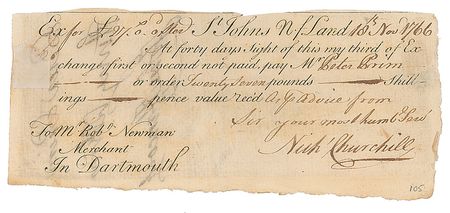 Ex for £27. 0. 0 St. Johns Nf.Land 18th Nov 1766
At forty days Sight of this my third of Ex
change, first or second not paid, pay Mr. Peter Prim
or order Twenty Seven pounds — Shill-
ings — pence value rec'd as p Advice from
Sir your most humb Serv
To Mr. Robt. Newman Nich Churchill
Merchant
In Dartmouth
105